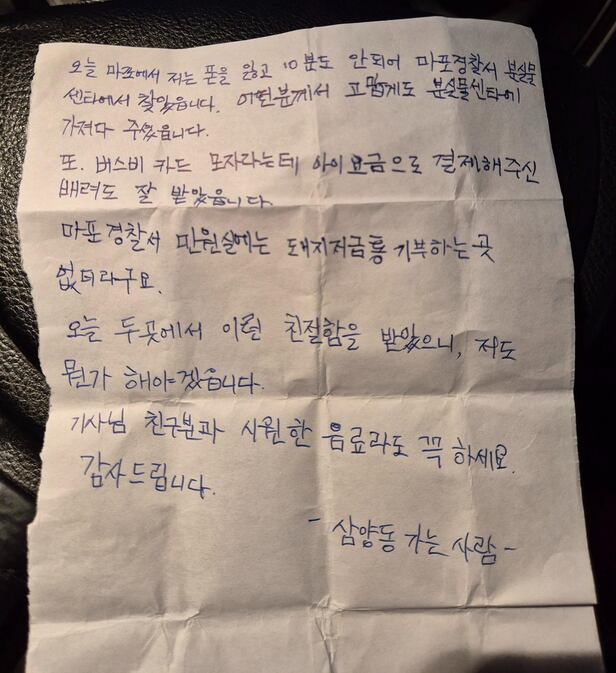 오늘 마포에서 저는 폰을 잃고 10분도 안되어 마포경찰서 분실물
센타에서 찾았읍니다. 어떤분께서 고맙게도 분실물센타에
가져다 주셨읍니다.
또. 버스비 카드 모자라는데 아이요금으로 결제해주신
배려도 잘 받았읍니다.
마포경찰서 민원실에는 돼지저금통 기부하는 곳
없더라구요.
오늘 두곳에서 이런 친절함을 받았으니, 저도
뭔가 해야겠읍니다.
기사님 친구분과 시원한 음료라도 꼭 하세요.
감사드립니다.
- 삼양동 가는 사람 -